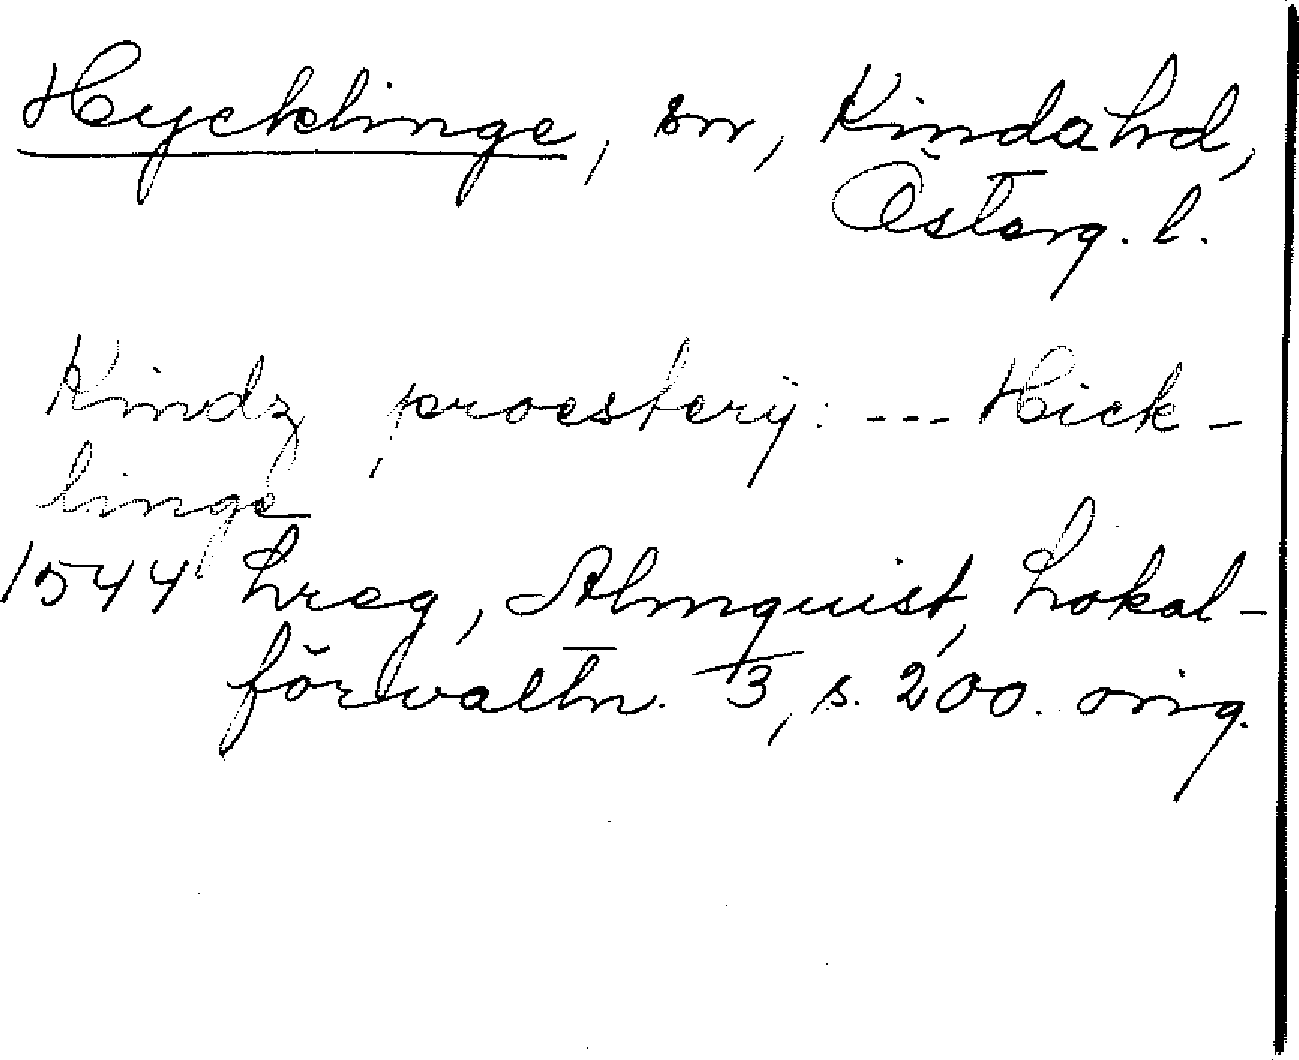 Hycklinge, sn, Kinda hd,
Österg. l.
Kindz proesterij: --- Hick-
linge
1544 Lreg, Almquist, Lokal-
förvaltn. 3, s. 200. orig.